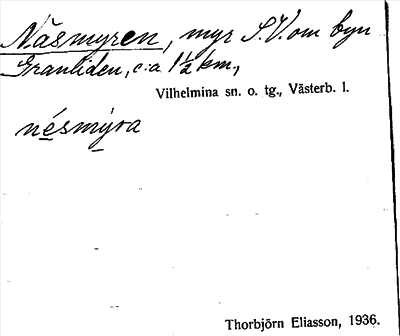 Näsmyren, myr S.V. om byn
Granliden, c:a 1½ km.,
Vilhelmina sn. o. tg., Västerb. l.
nésmýra
Thorbjörn Eliasson, 1936.